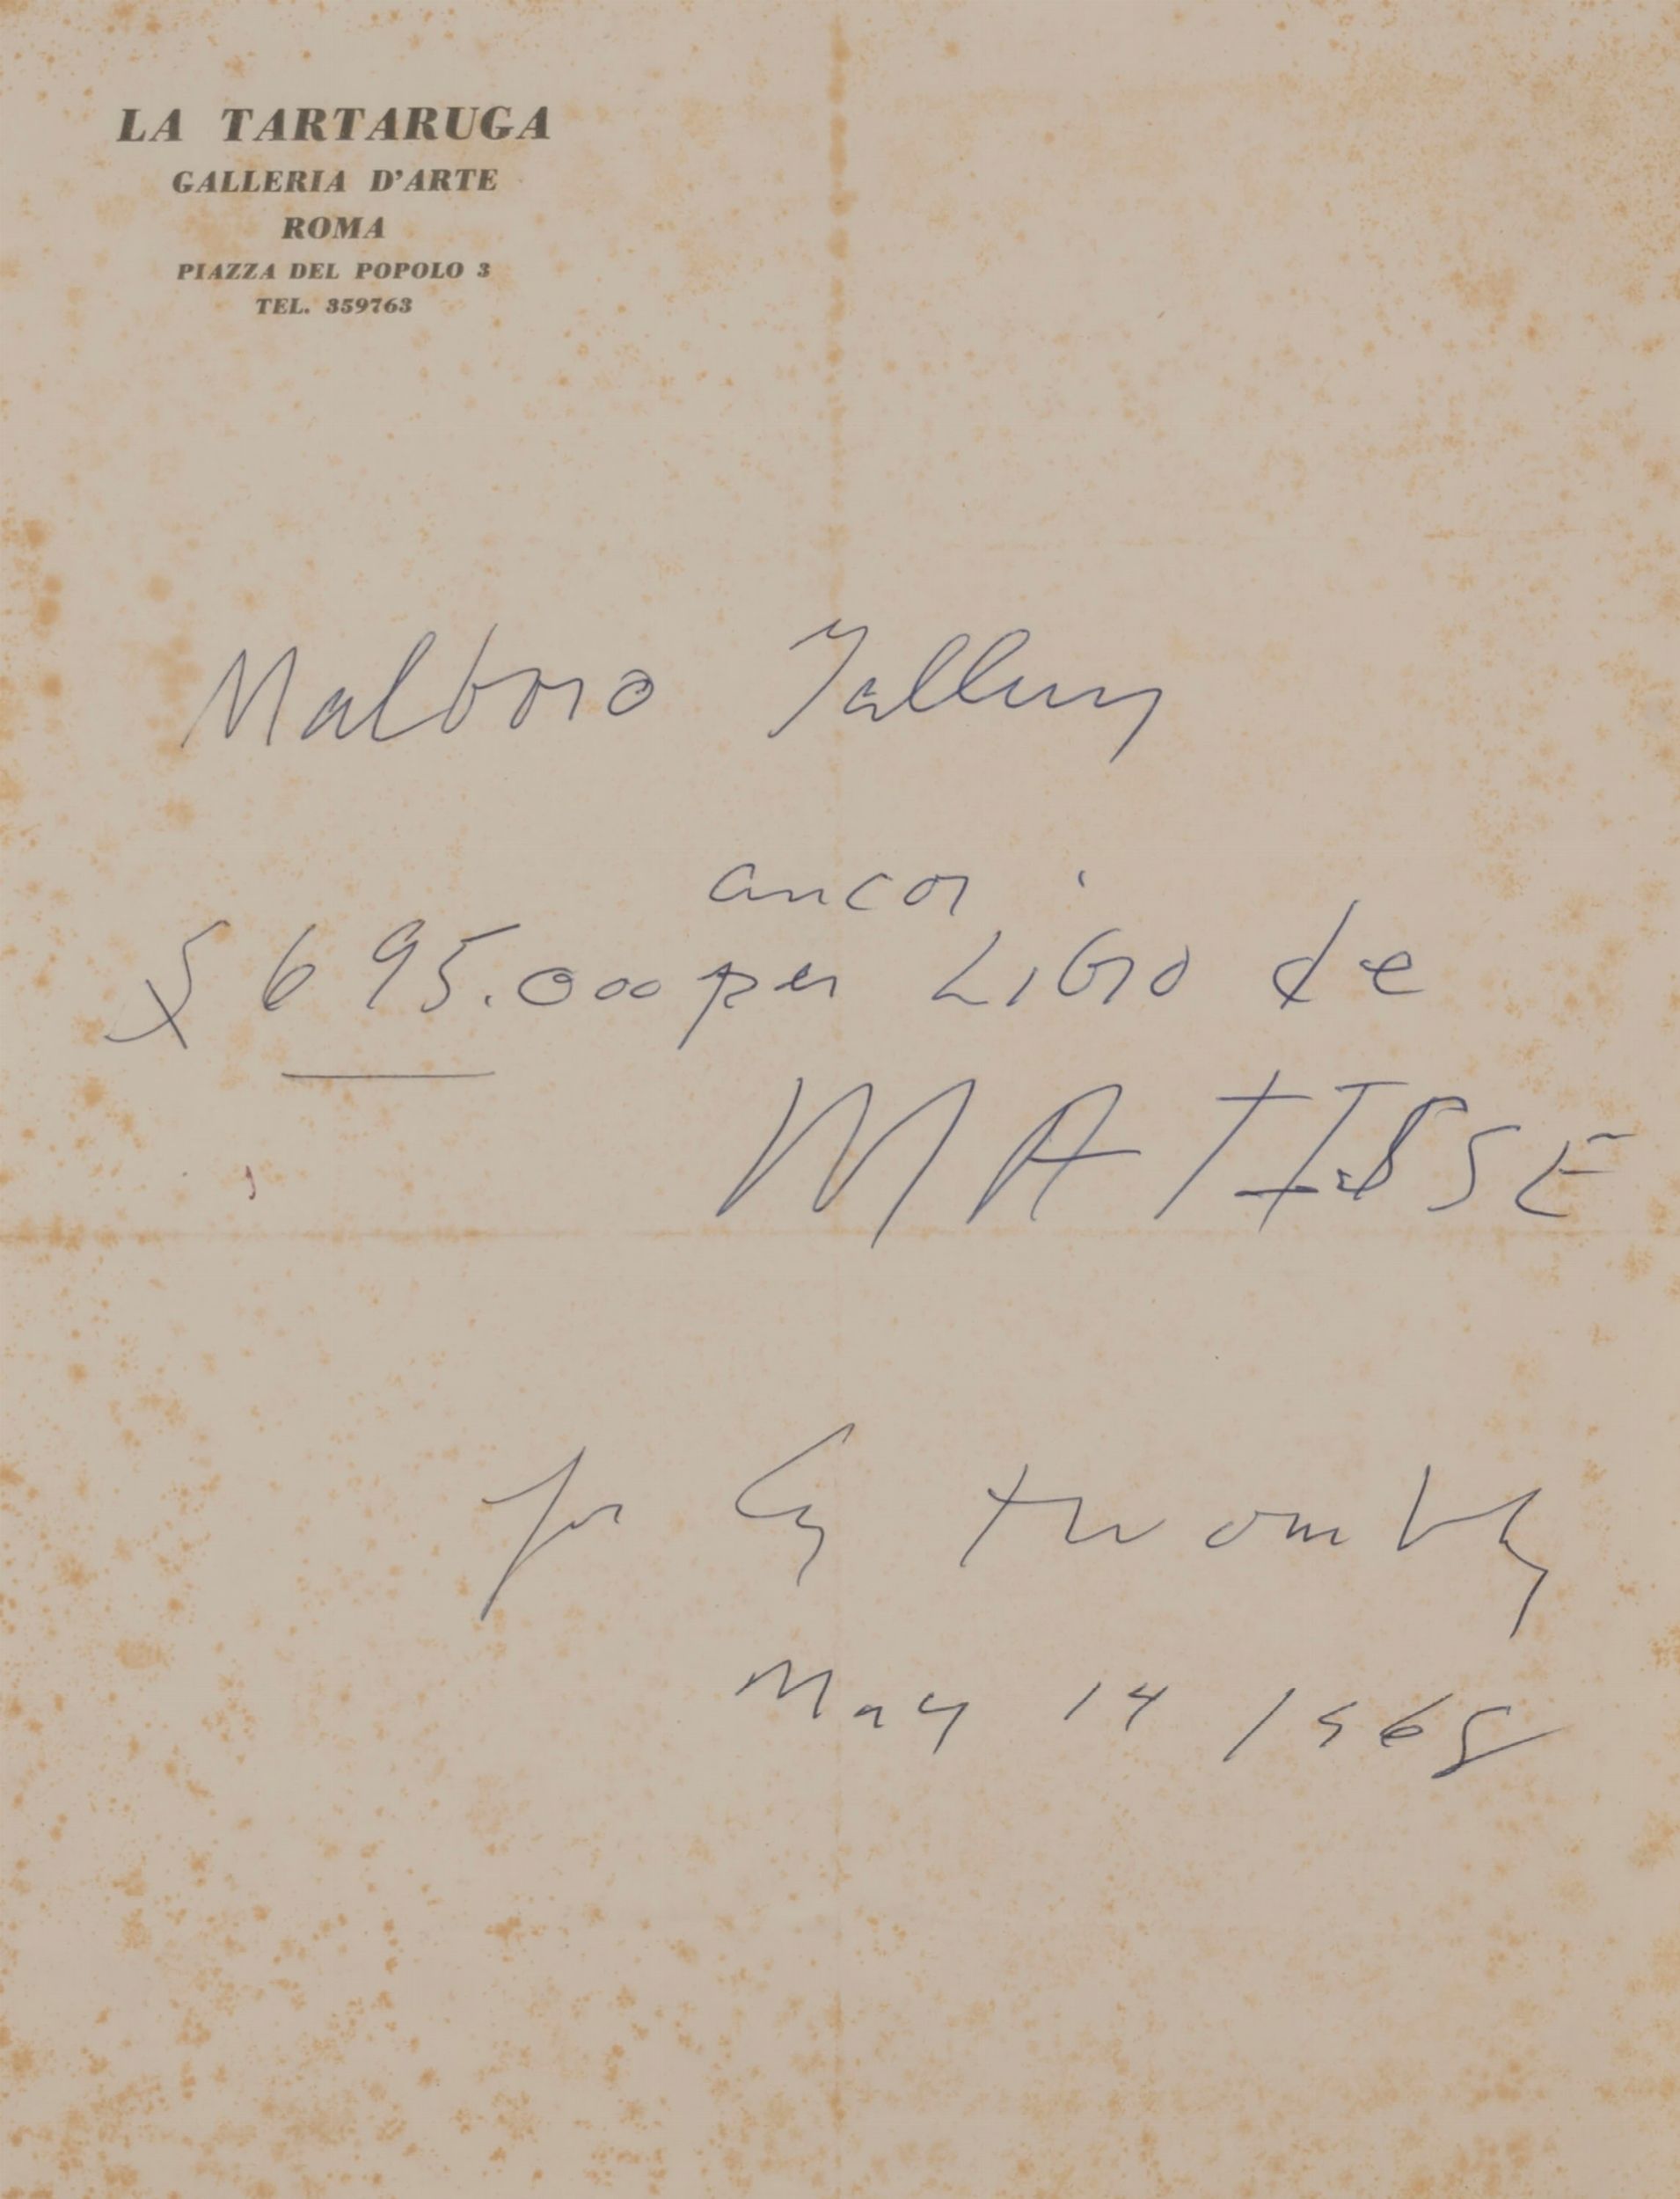 LA TARTARUGA
GALLERIA D'ARTE
ROMA
PIAZZA DEL POPOLO 3
TEL. 359763
Malboro Gallery
ancor
£ 695.000 per Libro de
MATISSE
for Cy twombly
May 14 1968